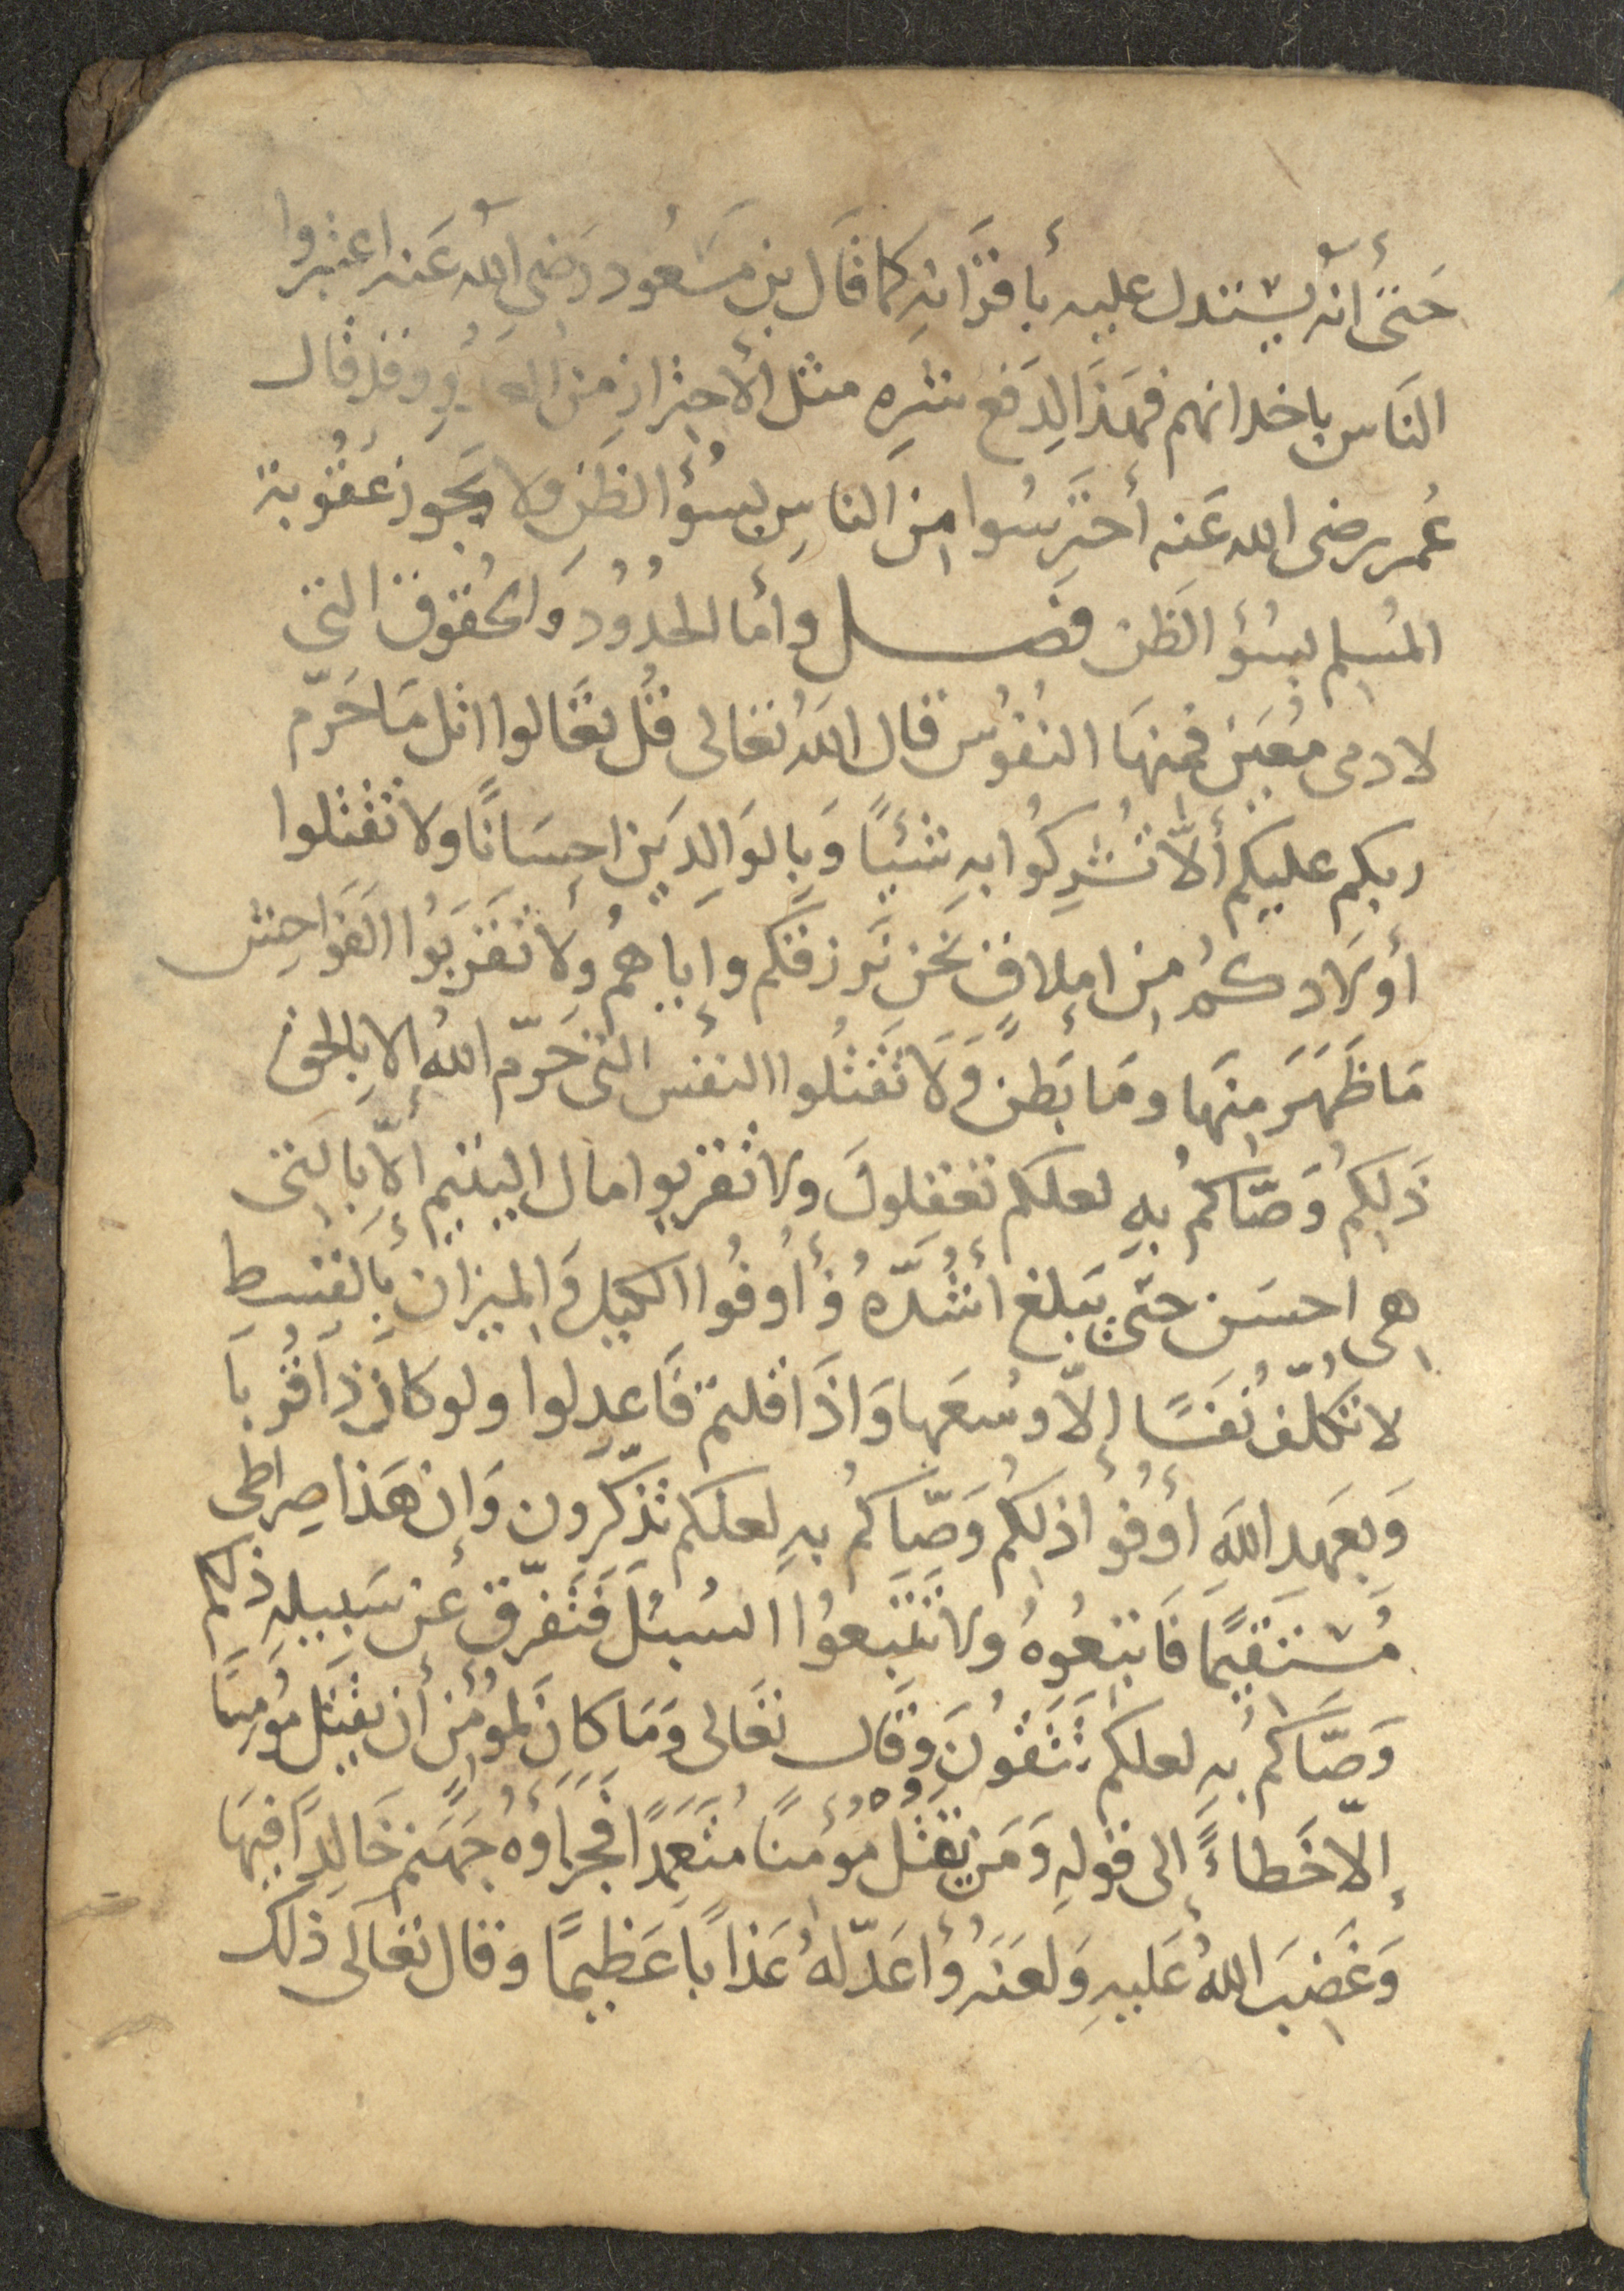 حَتىَّ أنه يستدل عليه بأقرَانِه كما قال بن مسَعُود رَضى الله عَنه اعتبروا
النَاس باخدانهم فهَذَا لِدَفع شرِه مثل الأحترازِ مِن وقد قال
عُمر رضى الله عَنه أحتَرِسُوا مِن الناسِ بسُوُء الظَنِ ولا يَجوز عقُوبة
المُسِلم بسُوُء الظَن فصل وأما الحدُوُد وَالحُقوق التى
لادمى مُعَيَن فمِنهَا النفُوُس قال اللهُ تعَالى قُل تعَالوا اتل مَا حَرّم
ربكم عليكم ألاّ تُشرِكُوا بهِ شَيئًا وَبِالوَالِدَيَن احِسَانًا ولا تقتلوا
أولَادكُم مِن امِلاقٍ نَحن نَرزقكم واياهمُ ولا تَقرَبُوا الفَوَاحِش
مَا ظَهَرَ مِنهَا ومَا بَطن وَلَا تَقتُلُوا النفس التى حَرّم اللهُ الا بِالحق
ذَلِكُم وَصّاكمُ بهِ لعلكم تعقِلونَ ولا تقربوا مال اليتيم إلاّ بالتِى
هِى احسَن حتى يَبلغ أشُدّهُ وَأوُفُوا الكيل وَالمِيزان بِالقسطِ
لا نُكلّفُ نُفَسًا إلاّ وسُعَها وَاذَا قلتم فَاعدِلوا ولو كان ذَا قُربَا
وَبعَهِد اللهَ أوُفُوا ذلِكُم وَصّاكمُ بهِ لعلكم تذّكرون وَإن هَذا صِراطى
مُستَقيِمًا فَاتبعُوهُ ولا تَتَبعُوا السُبُلَ فَتَفَرّق عَن سَبِيلِهِ ذلكم
وَصّاكمُ بهِ لعلكم تَتَقُونَ وقال تعَالى وَمَا كانَ لمؤمِن أن يقتل مؤمِنًا
إلاّ خَطاءً إلى قوله وَمَن يقتُل مؤمِنًا مُتَعَمِدًا فَجَزاؤهُ جَهَنم خَالِدًا فيِهَا
وَغَضِبَ اللهُ عَليهِ وَلعَنَهُ وَأعَدّ لهُ عَذابًا عَظيِمًا وقال تعالى ذلك